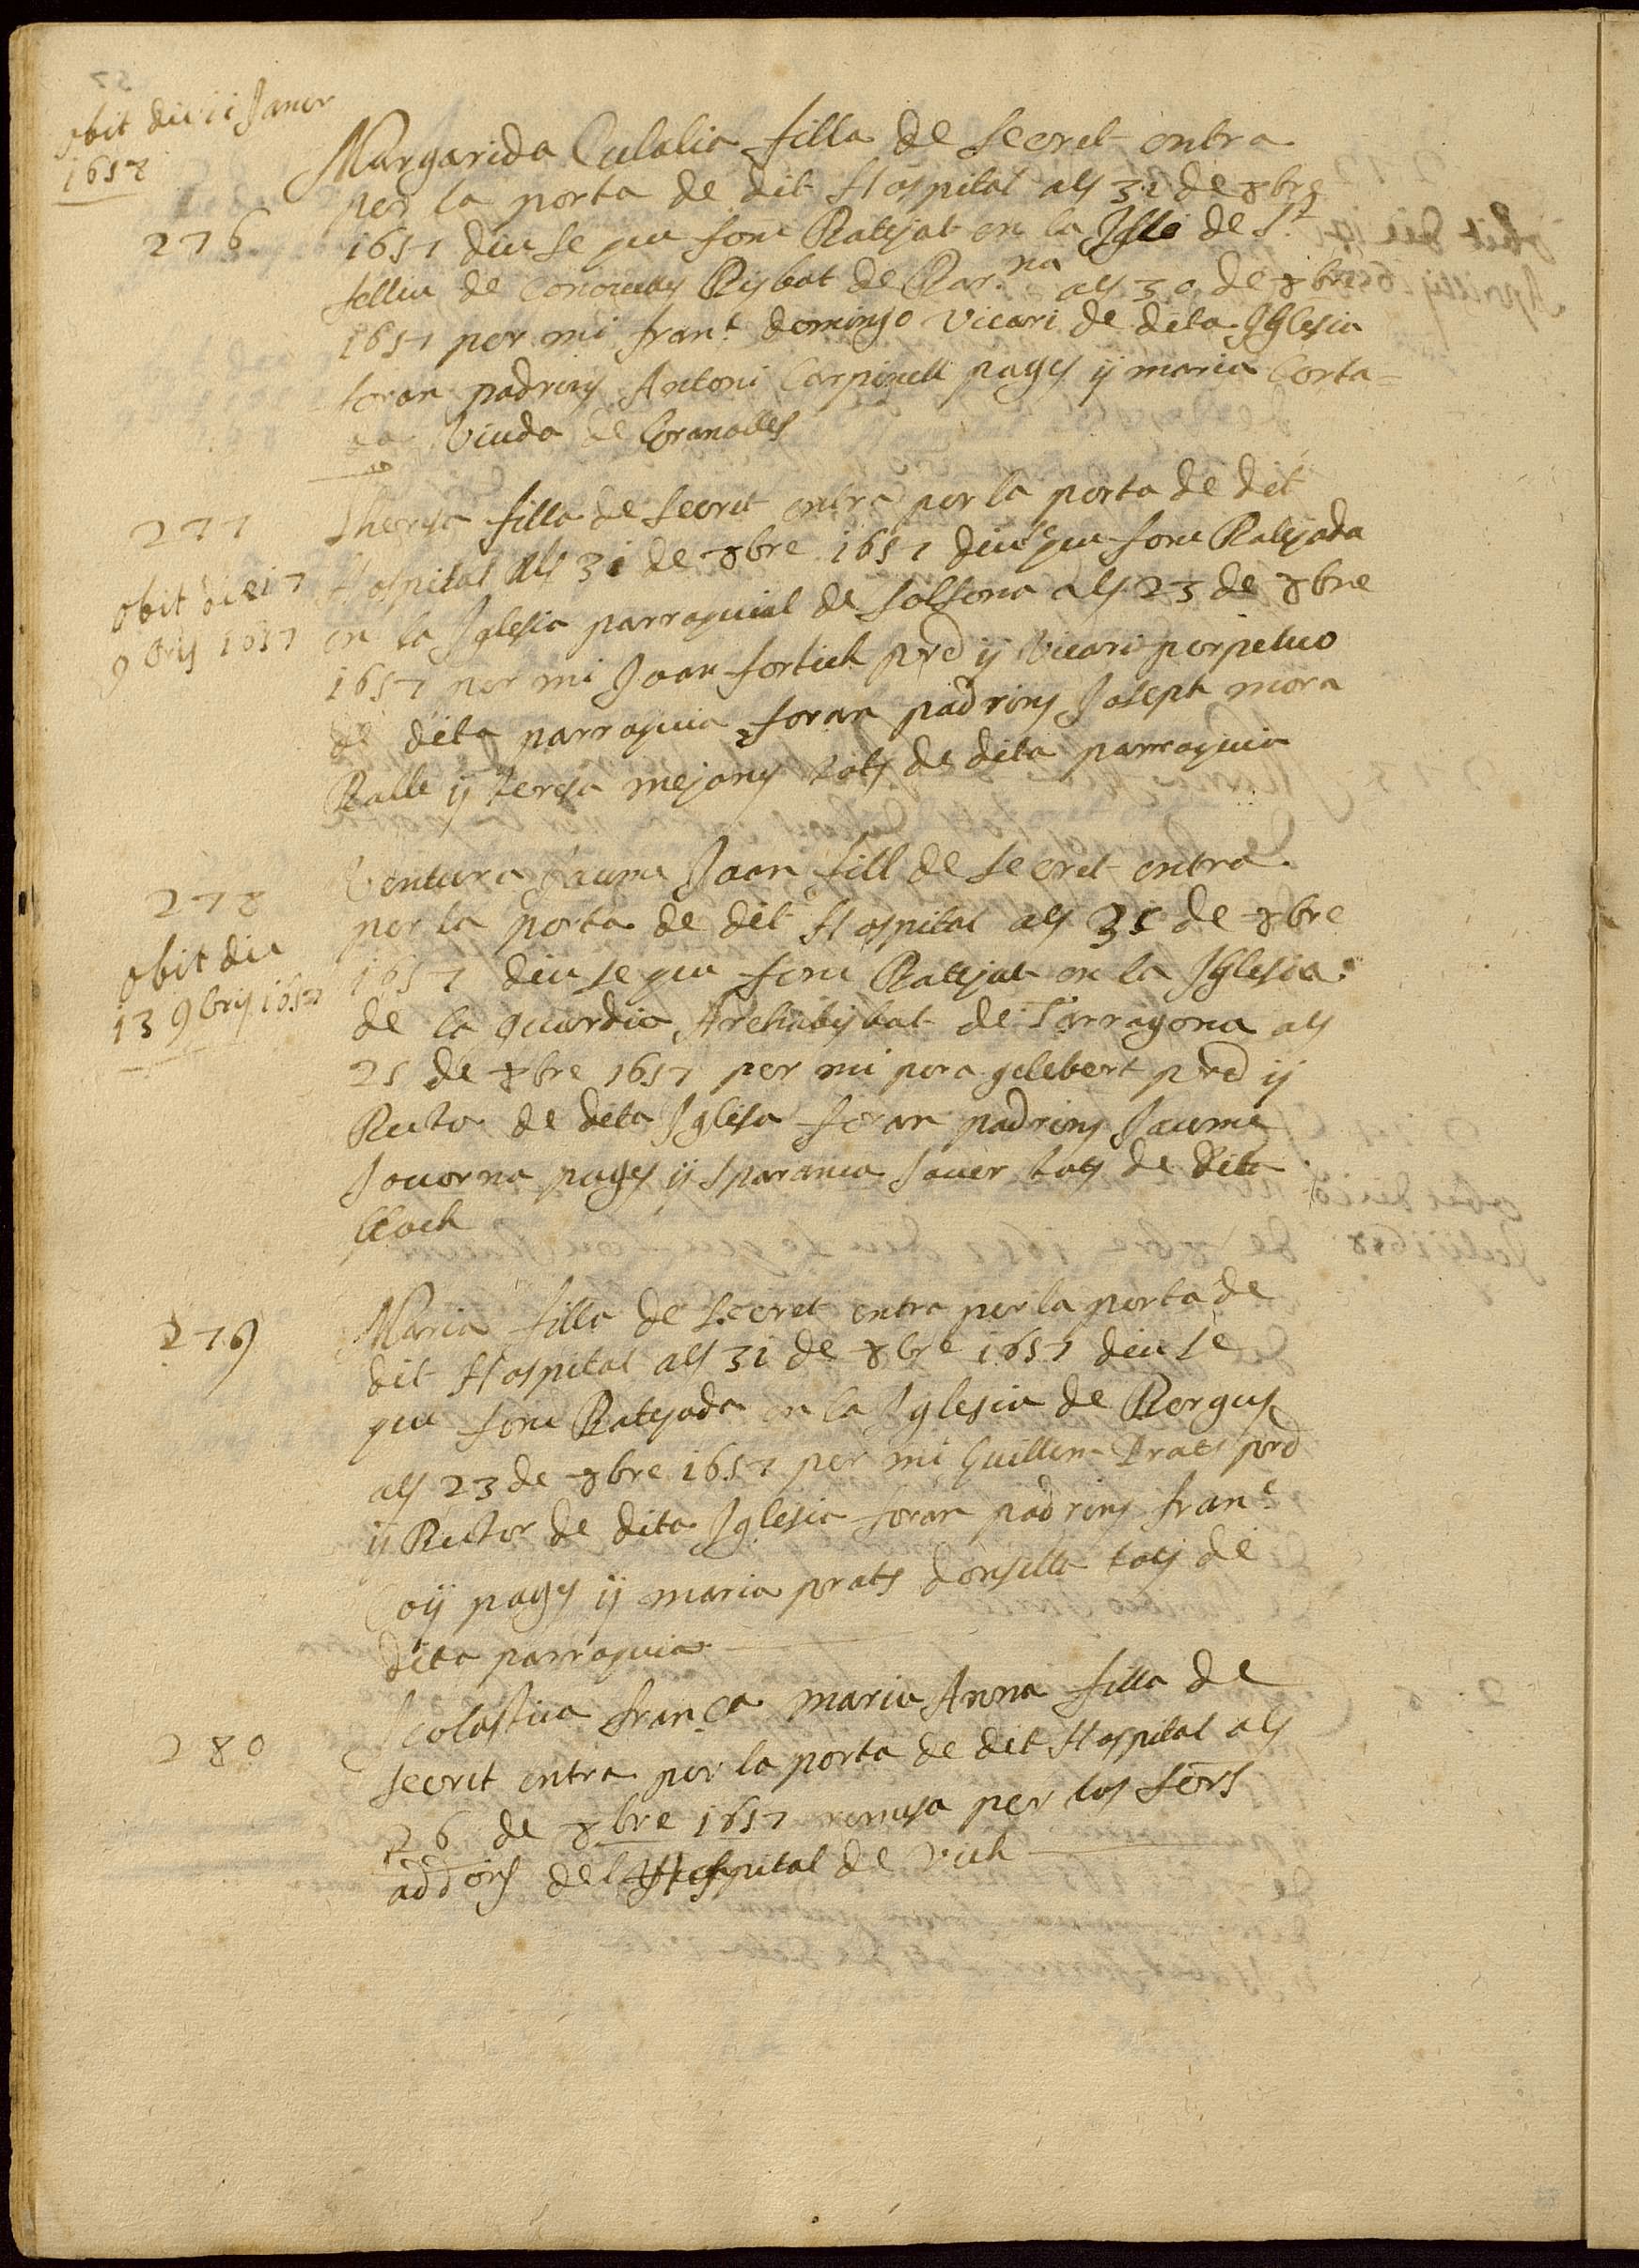 obit die 11 Janer
1657
276
Margarida Eulalia filla de secret entra
per la porta de dit Hospital als 31 de 8bre
1657 diu se que fonc Batejat en la Isle de St
felliu de Bisbat de Bar.na als 30 de 8bre
1657 per mi fran.c domingo vicari de dita Iglesia
foran padrins Antoni Carpinell pages y maria Corta=
da Viuda de Coranolles
277
obit die 17
9bris 1657
Theresa filla de secret entra per la porta de dit
Hospital als 31 de 8bre 1657 diu se que fonc Batejada
en la Iglesia parroquial de Solsona als 23 de 8bre
1657 per mi Joan fortich pre y Vicari perpetuo
de dita parroquia foran padrins Joseph mora
Balle y teresa mejans tots de dita parroquia
278
obit die
13 9bris 1657
Ventura Jaume Joan fill de secret entra
per la porta de dit Hospital als 31 de 8bre
1657 diu se que fonc Batejat en la Iglesia
de la guardia Archabisbat de Tarragona als
25 de 8bre 1657 per mi pera gelebert pre y
Rector de dita Iglesa foran padrins Jaume
Jovorna pages y Sparansa Soler tots de dita
lloch
279
Maria filla de secret entra per la porta de
dit Hospital als 31 de 8bre 1657 diu se
que fonc Batejada en la Iglesia de Bergus
als 23 de 8bre 1657 per mi Guillem Prats pre
y Rector de dita Iglesia foran padrins fran.c
Coy pages y maria prats donsella tots de
dita parroquia
280
Scolastica fran.ca maria Anna filla de
secret entra per la porta de dit Hospital als
26 de 8bre 1657 remesa per los sors
addors del Hospital de vich